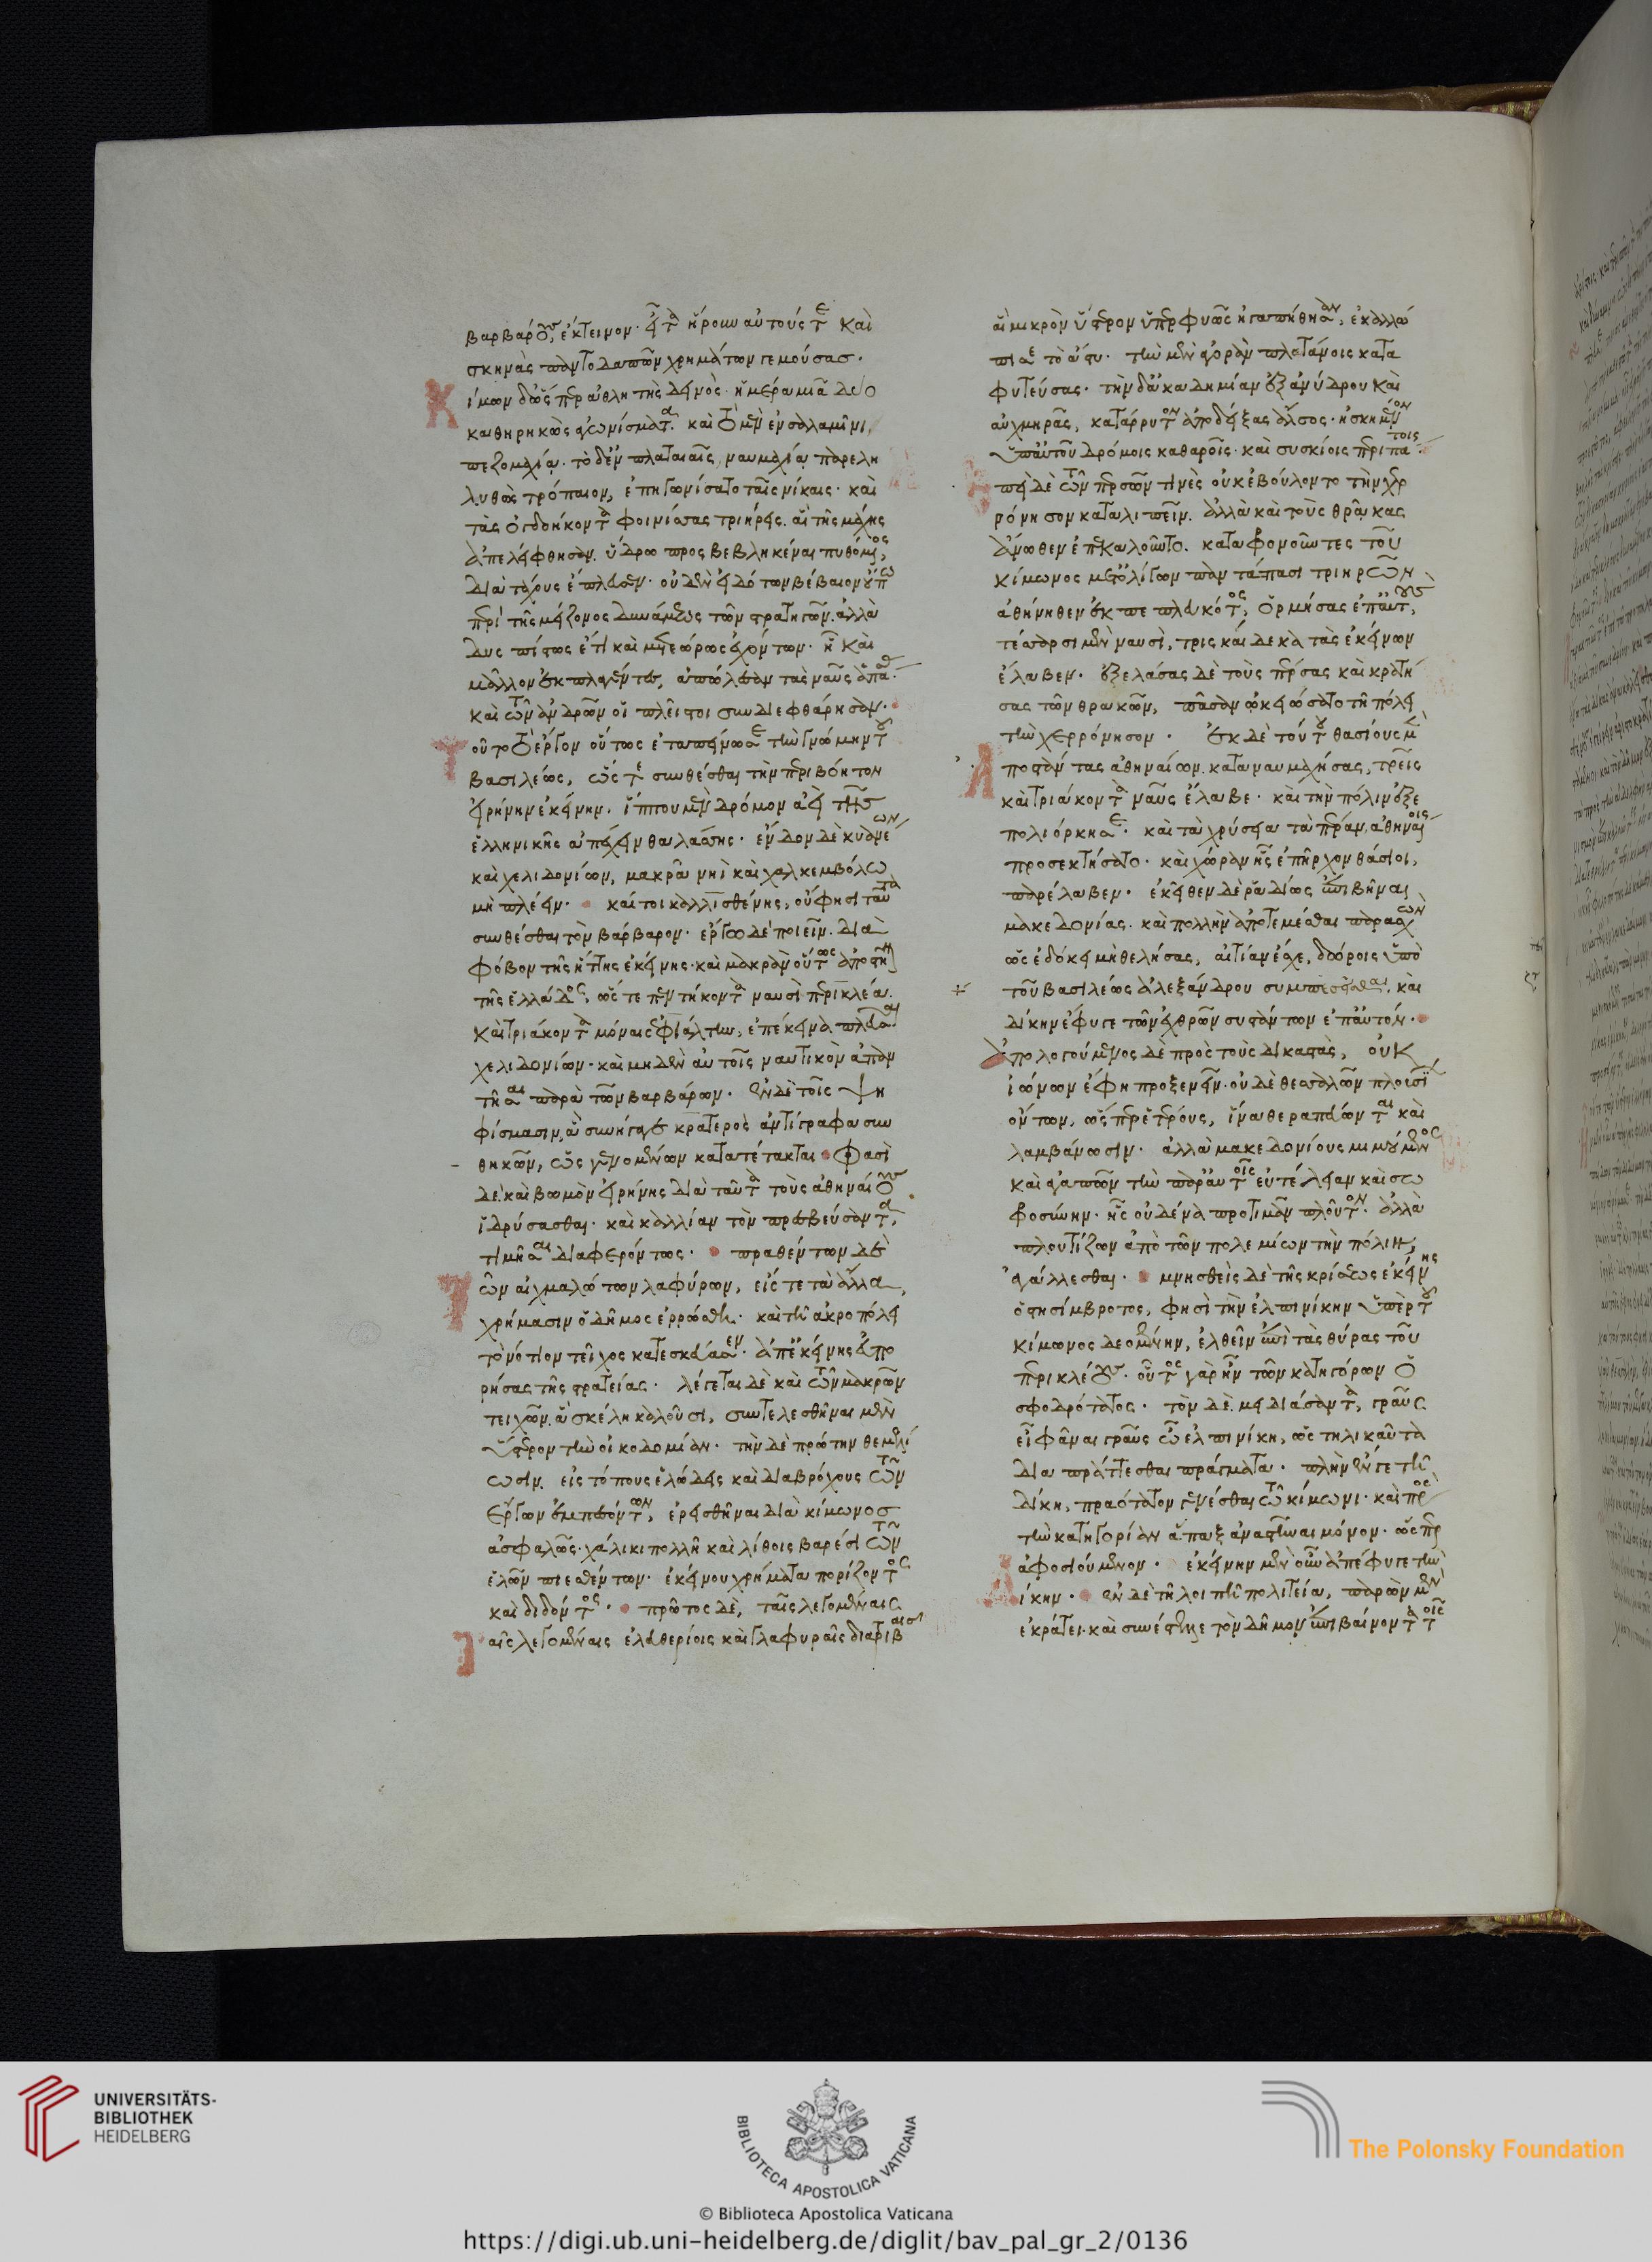 βαρβάρους, ἔκτεινον· εἶτα ᾕρουν αὐτούς τε καὶ
σκηνὰς παντοδαπῶν χρημάτων γεμούσας.
Κίμων δ᾽ ὥσπερ ἀθλητὴς δεινὸς ἡμέρα μιᾶ δύο
καθηρηκὼς ἀγωνίσματα. καὶ τὸ μὲν ἐν σαλαμῖνι
πεζομαχία. τὸ δ᾽ ἐν πλαταιαῖς, ναυμαχία παρελη
λυθὼς τρόπαιον, ἐπηγωνίσατο ταῖς νίκαις· καὶ
τὰς ὀγδοήκοντα φοινίσσας τριήρεις. αἳ τῆς μάχης
ἀπελείφθησαν. ὕδρω προσβεβληκέναι πυθόμενος,
διὰ τάχους ἔπλευσεν· οὐδὲν εἰδότων βέβαιον οὔπω
περὶ τῆς μείζονος δυνάμεως τῶν στρατηγῶν. ἀλλὰ
δυσπίστως ἔτι καὶ μετεώρως ἐχόντων· ἧ καὶ
μᾶλλον ἐκπλαγέντες, ἀπώλεσαν τὰς ναῦς ἁπάσας.
καὶ τῶν ἀνδρῶν οἱ πλεῖστοι συνδιεφθάρησαν.
Τοῦτο τὸ ἔργον οὕτως ἐταπείνωσε τὴν γνώμην τοῦ
βασιλέως, ὥστε συνθέσθαι τὴν περιβόητον
εἰρήνην ἐκείνην. ἵππου μὲν δρόμον ἀεὶ τῆς
ἑλληνικῆς ἀπέχειν θαλάσσης· ἔνδον δὲ κυανέων
καὶ χελιδονίων, μακρᾶ νηὶ καὶ χαλκεμβόλω
μὴ πλέειν. καίτοι καλλισθένης, οὔ φησι ταῦτα
συνθέσθαι τὸν βάρβαρον· ἔργω δὲ ποιεῖν. διὰ
φόβον τῆς ἥττης ἐκείνης· καὶ μακρὰν οὕτως ἀποστῆναι
τῆς ἑλλάδος, ὥστε πεντήκοντα ναυσὶ περικλέα.
καὶ τριάκοντα μόναις ἐφιάλτην, ἐπέκεινα πλεῦσαι
χελιδονίων· καὶ μηδὲν αὐτοῖς ναυτικὸν ἀπαν
τῆσαι παρὰ τῶν βαρβάρων. ἐν δὲ τοῖς ψη
φίσμασιν, ἃ συνήγαγε κρατερὸς ἀντίγραφα συν
θηκῶν, ὡς γενομένων κατατέτακται. φασὶ
δὲ καὶ βωμὸν εἰρήνης διὰ ταῦτα τοὺς ἀθηναίους
ἱδρύσασθαι· καὶ καλλίαν τὸν πρεσβεύσαντα,
τιμῆσαι διαφερόντως. πραθέντων δὲ
τῶν αἰχμαλώτων λαφύρων, εἴς τε τὰ ἄλλα
χρήμασιν ὁ δῆμος ἐρρώσθη. καὶ τῆ ἀκροπόλει
τὸ νότιον τεῖχος κατεσκεύασεν. ἀπ᾽ ἐκείνης εὐπο
ρήσας τῆς στρατείας. λέγεται δὲ καὶ τῶν μακρῶν
τειχῶν. ἃ σκέλη καλοῦσι, συντελεσθῆναι μὲν
ὕστερον τὴν οἰκοδομίαν. τὴν δὲ πρώτην θεμελί
ωσιν. εἰς τόπους ἑλώδεις καὶ διαβρόχους τῶν
ἔργων ἐμπεσόντων, ἐρεισθῆναι διὰ κίμωνος
ἀσφαλῶς. χάλικι πολλῆ καὶ λίθοις βαρέσι τῶν
ἑλῶν πιεσθέντων. ἐκείνου χρήματα πορίζοντος
καὶ διδόντος. πρῶτος δὲ, ταῖς λεγομέναις
ταῖς λεγομέναις ἐλευθερίοις καὶ γλαφυραῖς διατριβαῖς
αἳ μικρὸν ὕστερον ὑπερφυῶς ἠγαπήθησαν, ἐκαλλώ
πισε τὸ ἄστυ. τὴν μὲν ἀγορὰν πλατάνοις κατα
φυτεύσας. τὴν δ᾽ ἀκαδημίαν ἐξ ἀνύδρου καὶ
αὐχμηρᾶς, κατάρρυτον ἀποδείξας ἄλσος. ἠσκημένον
ὑπ᾽ αὐτοῦ δρόμοις καθαροῖς. καὶ συσκίοις περιπάτοις.
ἐπεὶ δὲ τῶν περσῶν τινὲς οὐκ ἐβούλοντο τὴν χερ
ρόνησον καταλιπεῖν. ἀλλὰ καὶ τοὺς θρᾶκας
ἄνωθεν ἐπεκαλοῦντο. καταφρονοῦντες τοῦ
κίμωνος μετ᾽ ὀλίγων παντάπασι τριηρῶν
ἀθήνηθεν ἐκπεπλευκότος, ὁρμήσας ἐπ᾽ αὐτοὺς,
τέσσαρσι μὲν ναυσὶ, τρισκαίδεκα τὰς ἐκείνων
ἔλαβεν. ἐξελάσας δὲ τοὺς πέρσας καὶ κρατή
σας τῶν θρακῶν, πᾶσαν ὠκειώσατο τῆ πόλει
τὴν χερρόνησον. ἐκ δὲ τούτου θασίους μὲν
Ἀποστάντας ἀθηναίων. καταναυμαχήσας, τρεῖς
καὶ τριάκοντα ναῦς ἔλαβε. καὶ τὴν πόλιν ἐξε
πολιόρκησε. καὶ τὰ χρύσεια τὰ πέραν, ἀθηναίοις
προσεκτήσατο. καὶ χώραν ἧς ἐπῆρχον θάσιοι,
παρέλαβεν. ἐκεῖθεν δὲ ῥαδίως ἐπιβῆναι
μακεδονίας. καὶ πολλὴν ἀποτεμέσθαι παρασχὼν
ὡς ἐδόκει μὴ θελήσας, αἰτίαν ἔσχε, δώροις ὑπὸ
τοῦ βασιλέως ἀλεξάνδρου συμπεπεῖσθαι, καὶ
δίκην ἔφυγε τῶν ἐχθρῶν συστάντων ἐπ᾽ αὐτόν.
Ἀπολογούμενος δὲ πρὸς τοὺς δικαστὰς, οὐκ
ἰώνων ἔφη προξενεῖν. οὐδὲ θεσσαλῶν πλουσίων
ὄντων, ὥσπερ ἑτέρους, ἵνα θεραπεύωνται καὶ
λαμβάνωσιν. ἀλλὰ μακεδονίους μιμούμενος
καὶ ἀγαπῶν τὴν παρ᾽ αὐτοῖς εὐτέλειαν καὶ σω
φροσύνην. ἧς οὐδένα προτιμᾶν πλοῦτον. ἀλλὰ
πλουτίζων ἀπὸ τῶν πολεμίων τὴν πόλιν,
ἀγάλλεσθαι. μνησθεὶς δὲ τῆς κρίσεως ἐκείνης
ὁ στησίμβροτος, φησὶ τὴν ἐλπινίκην ὑπὲρ τοῦ
κίμωνος δεομένην, ἐλθεῖν ἐπὶ τὰς θύρας τοῦ
περικλέους. οὗτος γὰρ ἦν τῶν κατηγόρων ὁ
σφοδρότατος. τὸν δὲ μειδιάσαντα, γραῦς
εἶ φάναι γραῦς ὦ ἐλπινίκη, ὡς τηλικαῦτα
διαπράττεσθαι πράγματα. πλὴν ἔν γε τῆ
δίκη, πραότατον γενέσθαι τῶ κίμωνι. καὶ πρὸς
τὴν κατηγορίαν ἅπαξ ἀναστῆναι μόνον. ὥσπερ
ἀφοσιούμενον. ἐκείνην μὲν οὖν ἀπέφυγε τὴν
δίκην. ἐν δὲ τῆ λοιπῆ πολιτεία, παρὼν μὲν
ἐκράτει. καὶ συνέστελλε τὸν δῆμον ἐπιβαίνοντα τοῖς
UNIVERSITÄTS-
BIBLIOTHEK
HEIDELBERG
BIBLIOTECA APOSTOLICA VATICANA
The Polonsky Foundation
© Biblioteca Apostolica Vaticana
https://digi.ub.uni-heidelberg.de/diglit/bav_pal_gr_2/0136